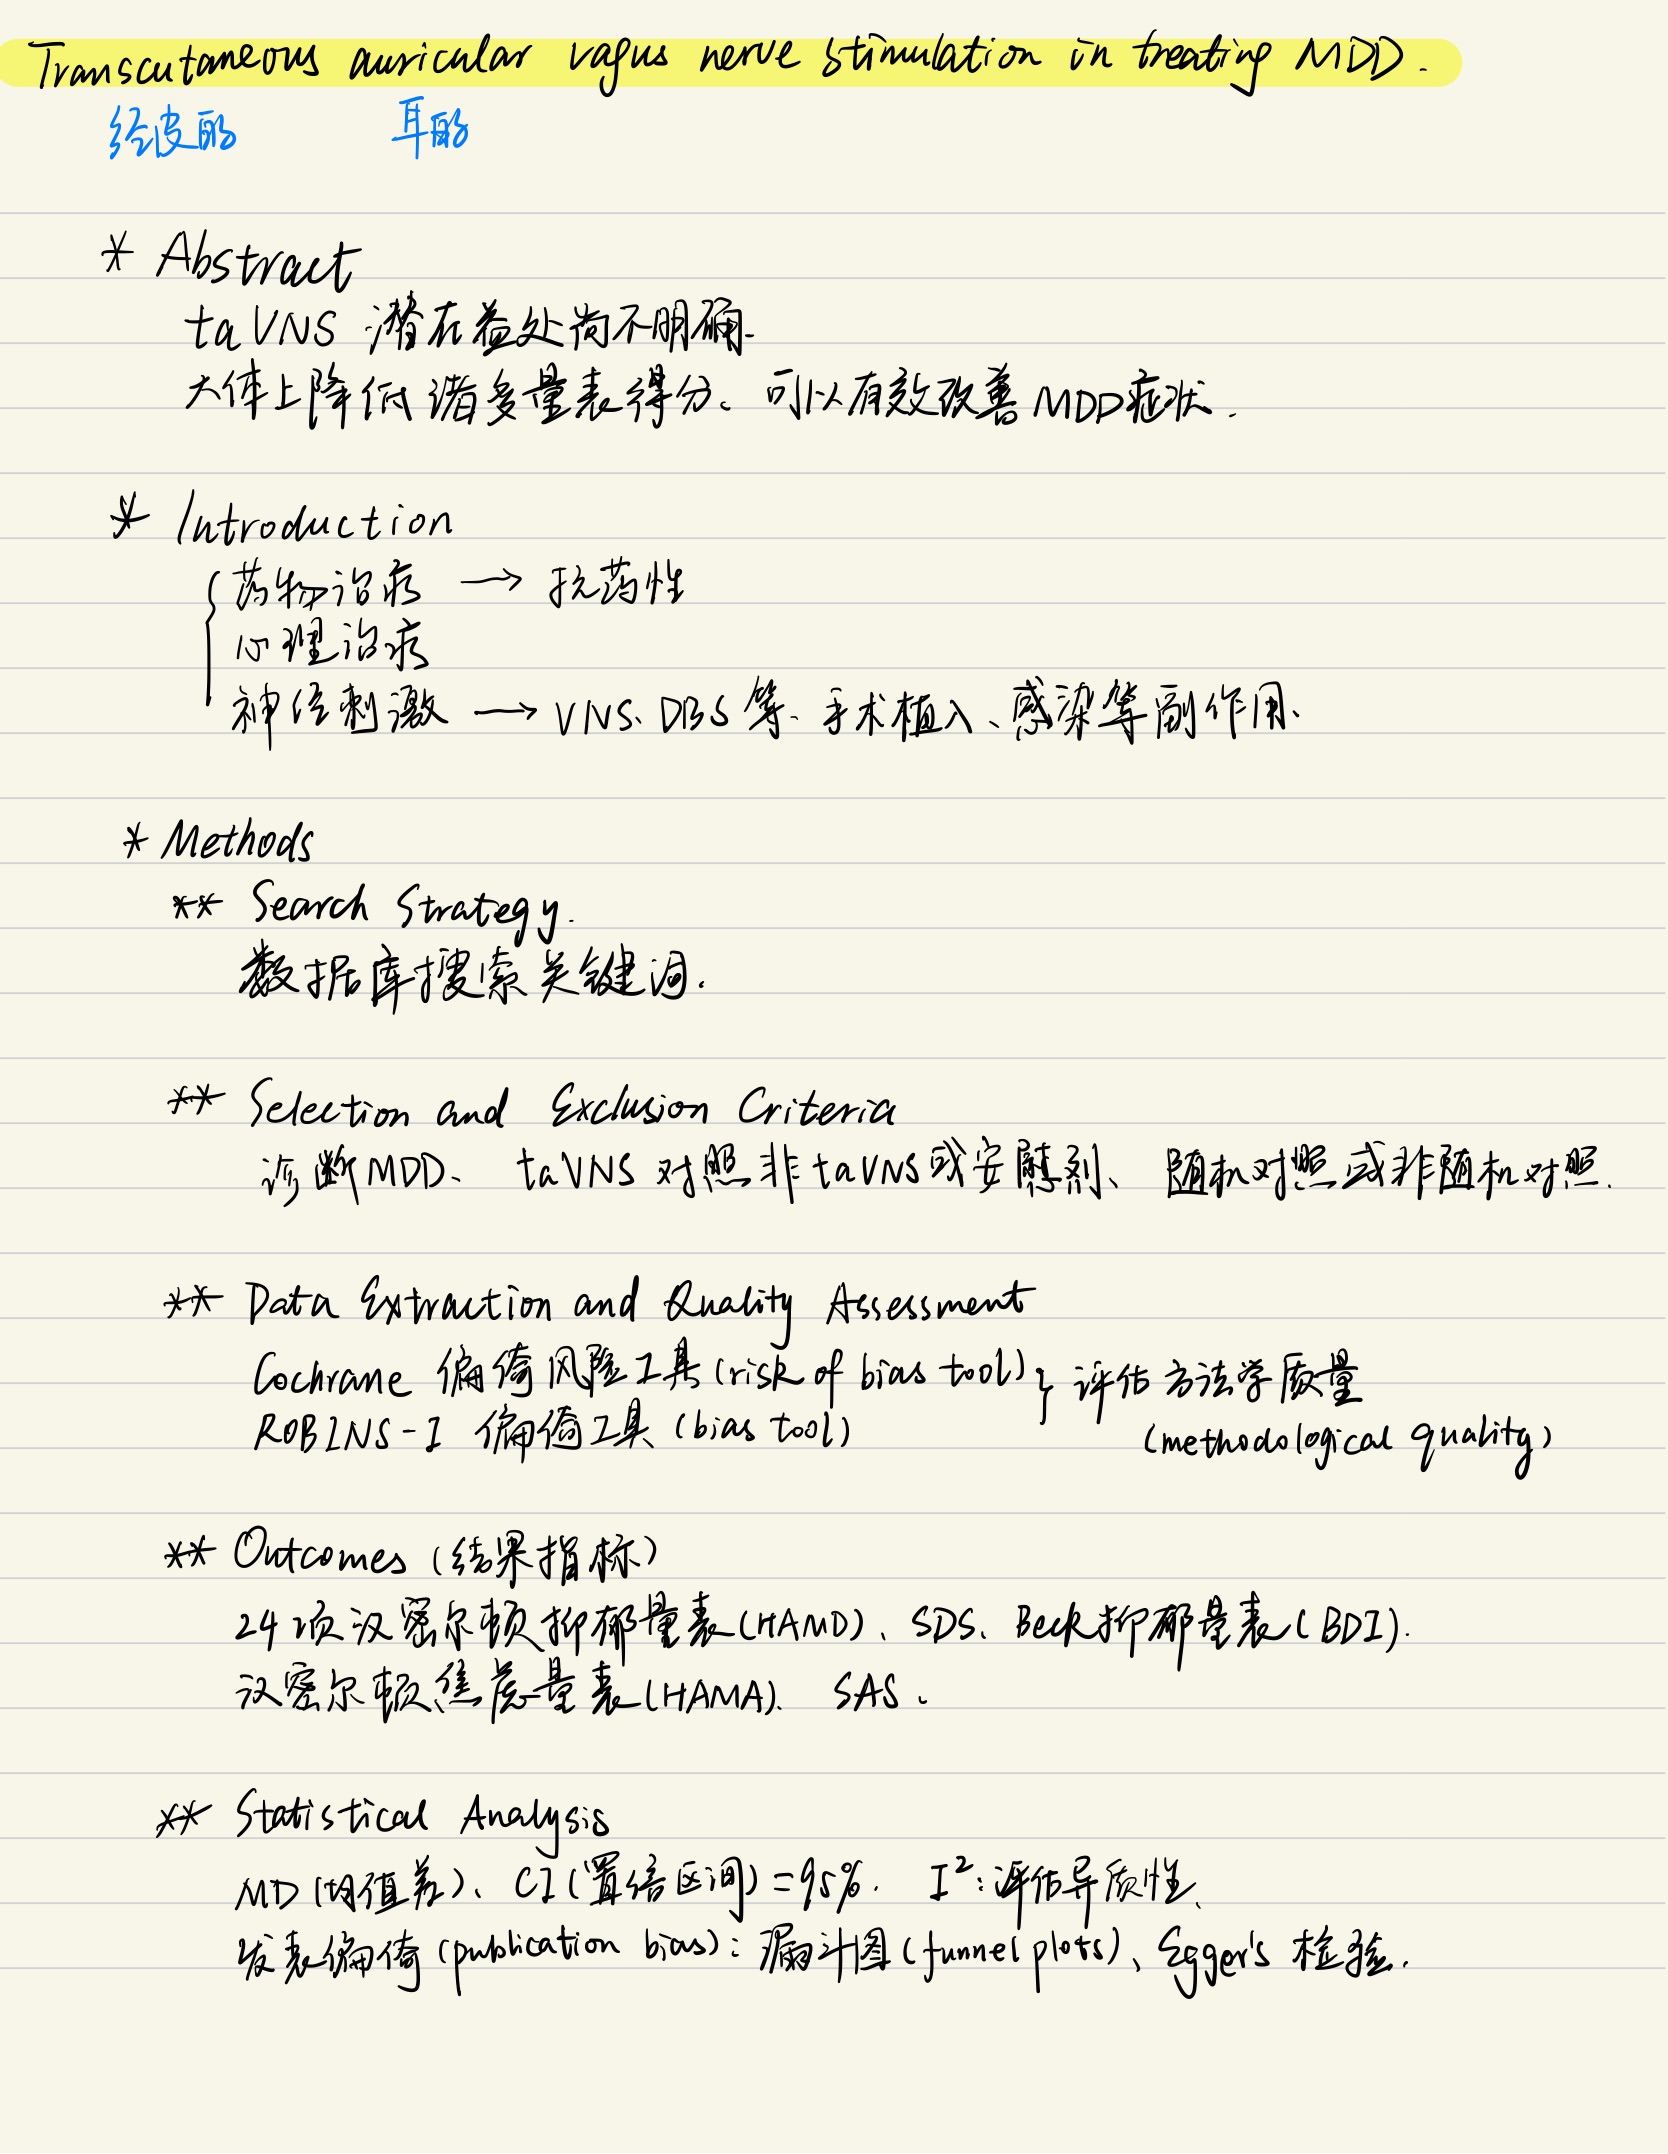 Transcutaneous auricular vagus nerve stimulation in treating MDD.
经皮的 耳的
* Abstract
taVNS 潜在益处尚不明确.
大体上降低诸多量表得分。可以有效改善MDD症状.
* Introduction
药物治疗 → 抗药性
心理治疗
神经刺激 → VNS、DBS等、手术植入、感染等副作用、
* Methods
** Search Strategy.
数据库搜索关键词.
** Selection and Exclusion Criteria
诊断MDD、 taVNS 对照非taVNS或安慰剂、 随机对照或非随机对照.
** Data Extraction and Quality Assessment
Cochrane 偏倚风险工具(risk of bias tool) } 评估方法学质量
ROBINS-I 偏倚工具 (bias tool) (methodological quality)
** Outcomes (结果指标)
24项汉密尔顿抑郁量表(HAMD)、SDS、Beck抑郁量表(BDI).
汉密尔顿焦虑量表(HAMA)、 SAS。
** Statistical Analysis
MD(均值差)、CI(置信区间)=95%. I²:评估异质性、
发表偏倚(publication bias):漏斗图(funnel plots)、Egger's 检验.